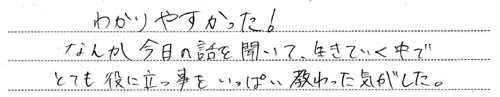 わかりやすかった！
なんか今日の話を聞いて、生きていく中で
とても役に立つ事をいっぱい教わった気がした。